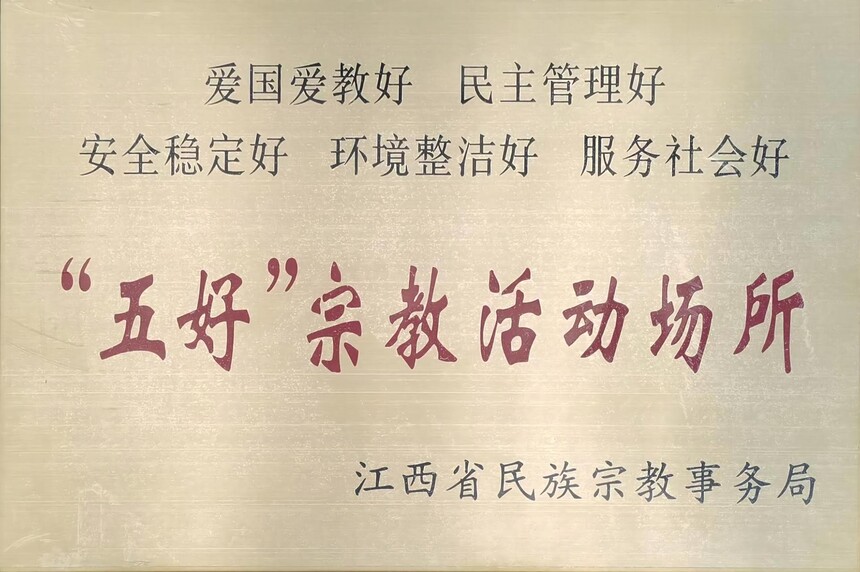 爱国爱教好 民主管理好
安全稳定好 环境整洁好 服务社会好
“五好”宗教活动场所
江西省民族宗教事务局